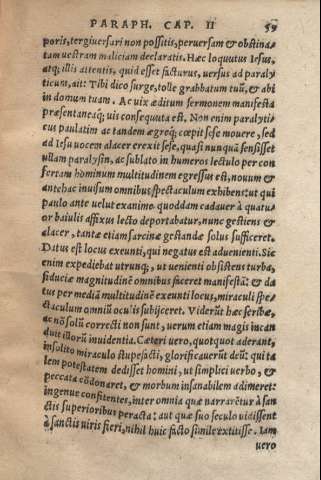 PARAPH. CAP. II 59
poris, tergiuersari non possitis, peruersam & obstina-
tam uestram maliciam declaratis. Hæc loquutus Iesus,
atq; illis attentis, quid esset facturus, uersus ad paraly
ticum, ait: Tibi dico surge, tolle grabbatum tuũ, & abi
in domum tuam. Ac uix æditum sermonem manifesta
præsentaneaq; uis consequuta est. Non enim paralyti-
cus paulatim ac tandem ægreq; cœpit sese mouere, sed
ad Iesu uocem alacer erexit sese, quasi nunquã sensisset
ullam paralysin, ac sublato in humeros lectulo per con
fertam hominum multitudinem egressus est, nouum &
antehac inuisum omnibus spectaculum exhibens: ut qui
paulo ante uelut exanime quoddam cadauer à quatu-
or baiulis affixus lecto deportabatur, nunc gestiens &
alacer, tantæ etiam sarcinæ gestandæ solus sufficeret.
Datus est locus exeunti, qui negatus est aduenienti. Sic
enim expediebat utrunq;, ut uenienti obsistens turba,
fiduciæ magnitudinẽ omnibus faceret manifestã: & da
tus per mediã multitudinẽ exeunti locus, miraculi spe-
ctaculum omniũ oculis subijceret. Viderũt hæc scribæ,
ac nõ solũ correcti non sunt, uerum etiam magis incan
duit illorũ inuidentia. Cæteri uero, quotquot aderant,
insolito miraculo stupefacti, glorificauerũt deũ: qui ta
lem potestatem dedisset homini, ut simplici uerbo, &
peccata cõdonaret, & morbum insanabilem adimeret:
ingenue confitentes, inter omnia quæ narrarẽtur à san
ctis superioribus peracta: aut quæ suo seculo uidissent
à sanctis uiris fieri, nihil huic facto simile extitisse. Iam
uero